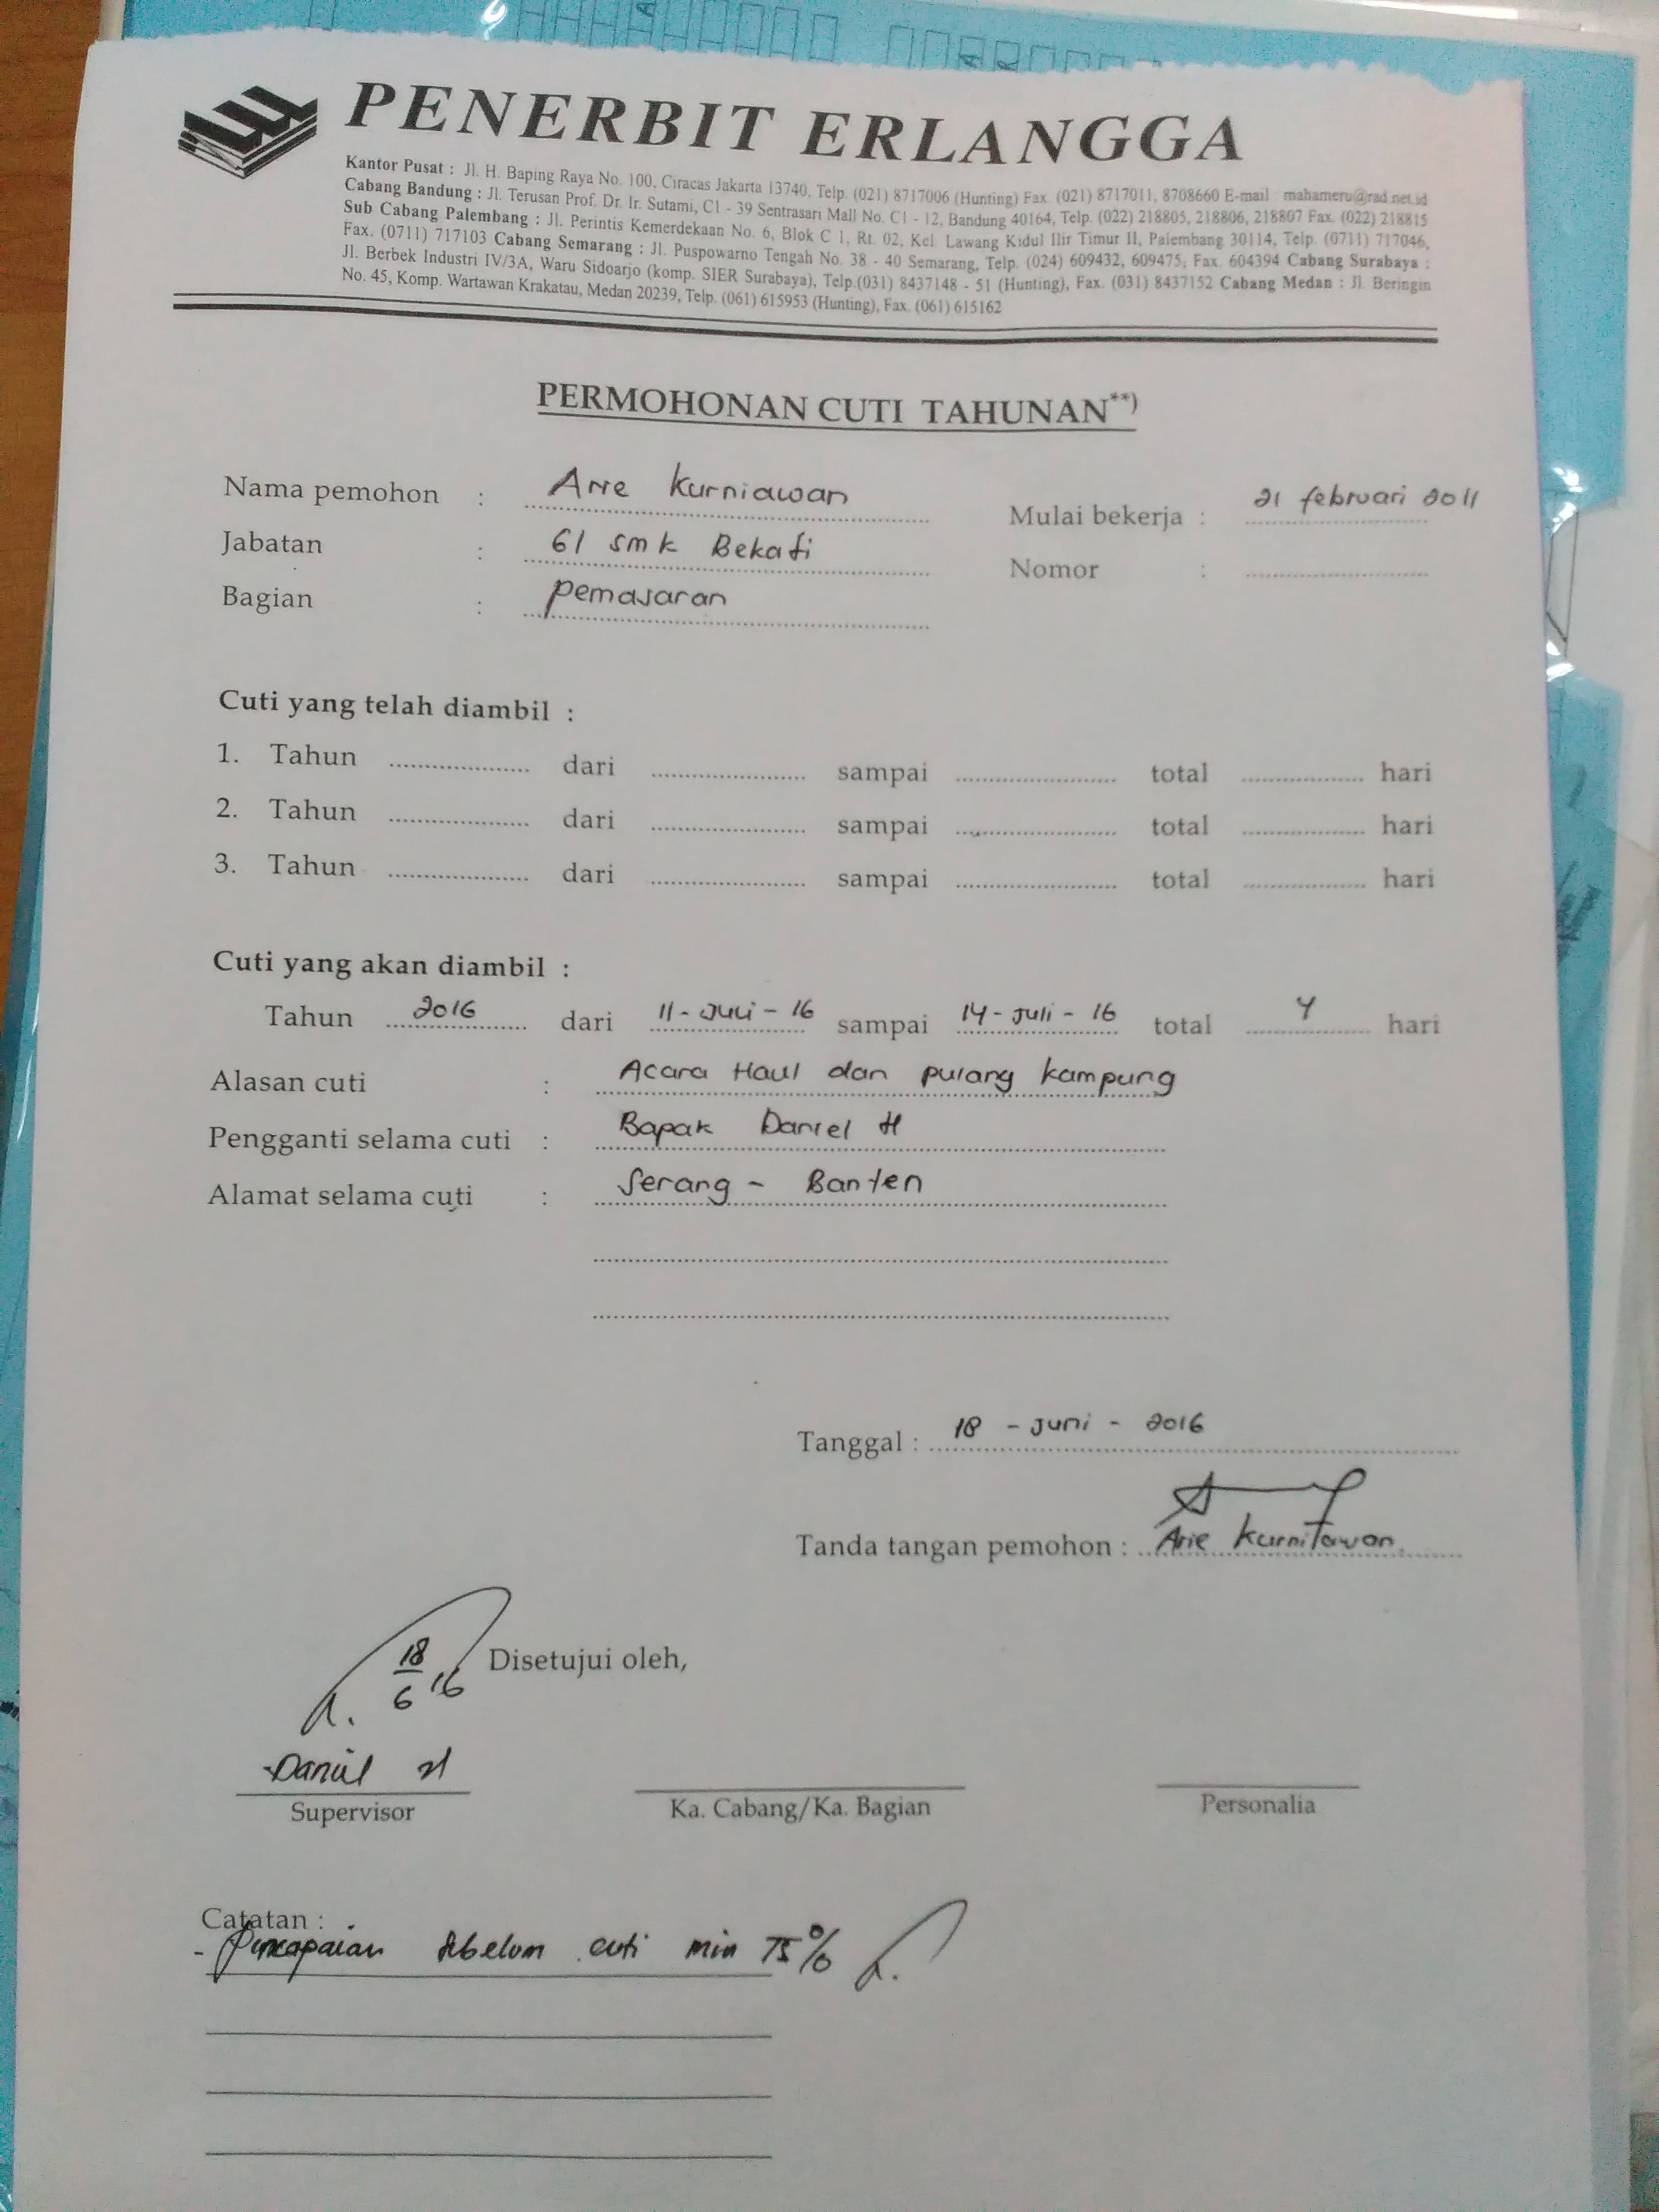 PENERBIT ERLANGGA
Kantor Pusat : Jl. H. Baping Raya No. 100, Ciracas Jakarta 13740, Telp. (021) 8717006 (Hunting) Fax. (021) 8717011, 8708660 E-mail mahameru@rad.net.id
Cabang Bandung : Jl. Terusan Prof. Dr. Ir. Sutami, C1 - 39 Sentrasari Mall No. C1 - 12, Bandung 40164, Telp. (022) 218805, 218806, 218807 Fax. (022) 218815
Sub Cabang Palembang : Jl. Perintis Kemerdekaan No. 6, Blok C 1, Rt. 02, Kel. Lawang Kidul Ilir Timur II, Palembang 30114, Telp. (0711) 717046,
Fax. (0711) 717103 Cabang Semarang : Jl. Puspowarno Tengah No. 38 - 40 Semarang, Telp. (024) 609432, 609475, Fax. 604394 Cabang Surabaya :
Jl. Berbek Industri IV/3A, Waru Sidoarjo (komp. SIER Surabaya), Telp.(031) 8437148 - 51 (Hunting), Fax. (031) 8437152 Cabang Medan : Jl. Beringin
No. 45, Komp. Wartawan Krakatau, Medan 20239, Telp. (061) 615953 (Hunting), Fax. (061) 615162
PERMOHONAN CUTI TAHUNAN**)
Nama pemohon : Arie Kurniawan Mulai bekerja : 21 februari 2011
Jabatan : 61 smk Bekasi Nomor :
Bagian : pemasaran
Cuti yang telah diambil :
1. Tahun dari sampai total hari
2. Tahun dari sampai total hari
3. Tahun dari sampai total hari
Cuti yang akan diambil :
Tahun 2016 dari 11 - Juli - 16 sampai 14 - Juli - 16 total 4 hari
Alasan cuti : Acara Haul dan pulang kampung
Pengganti selama cuti : Bapak Daniel H
Alamat selama cuti : Serang - Banten
Tanggal : 18 - Juni - 2016
Tanda tangan pemohon : Arie Kurniawan
18/6 '16 Disetujui oleh,
Daniel H
Supervisor Ka. Cabang/Ka. Bagian Personalia
Catatan :
- Pencapaian sebelum cuti min 75%